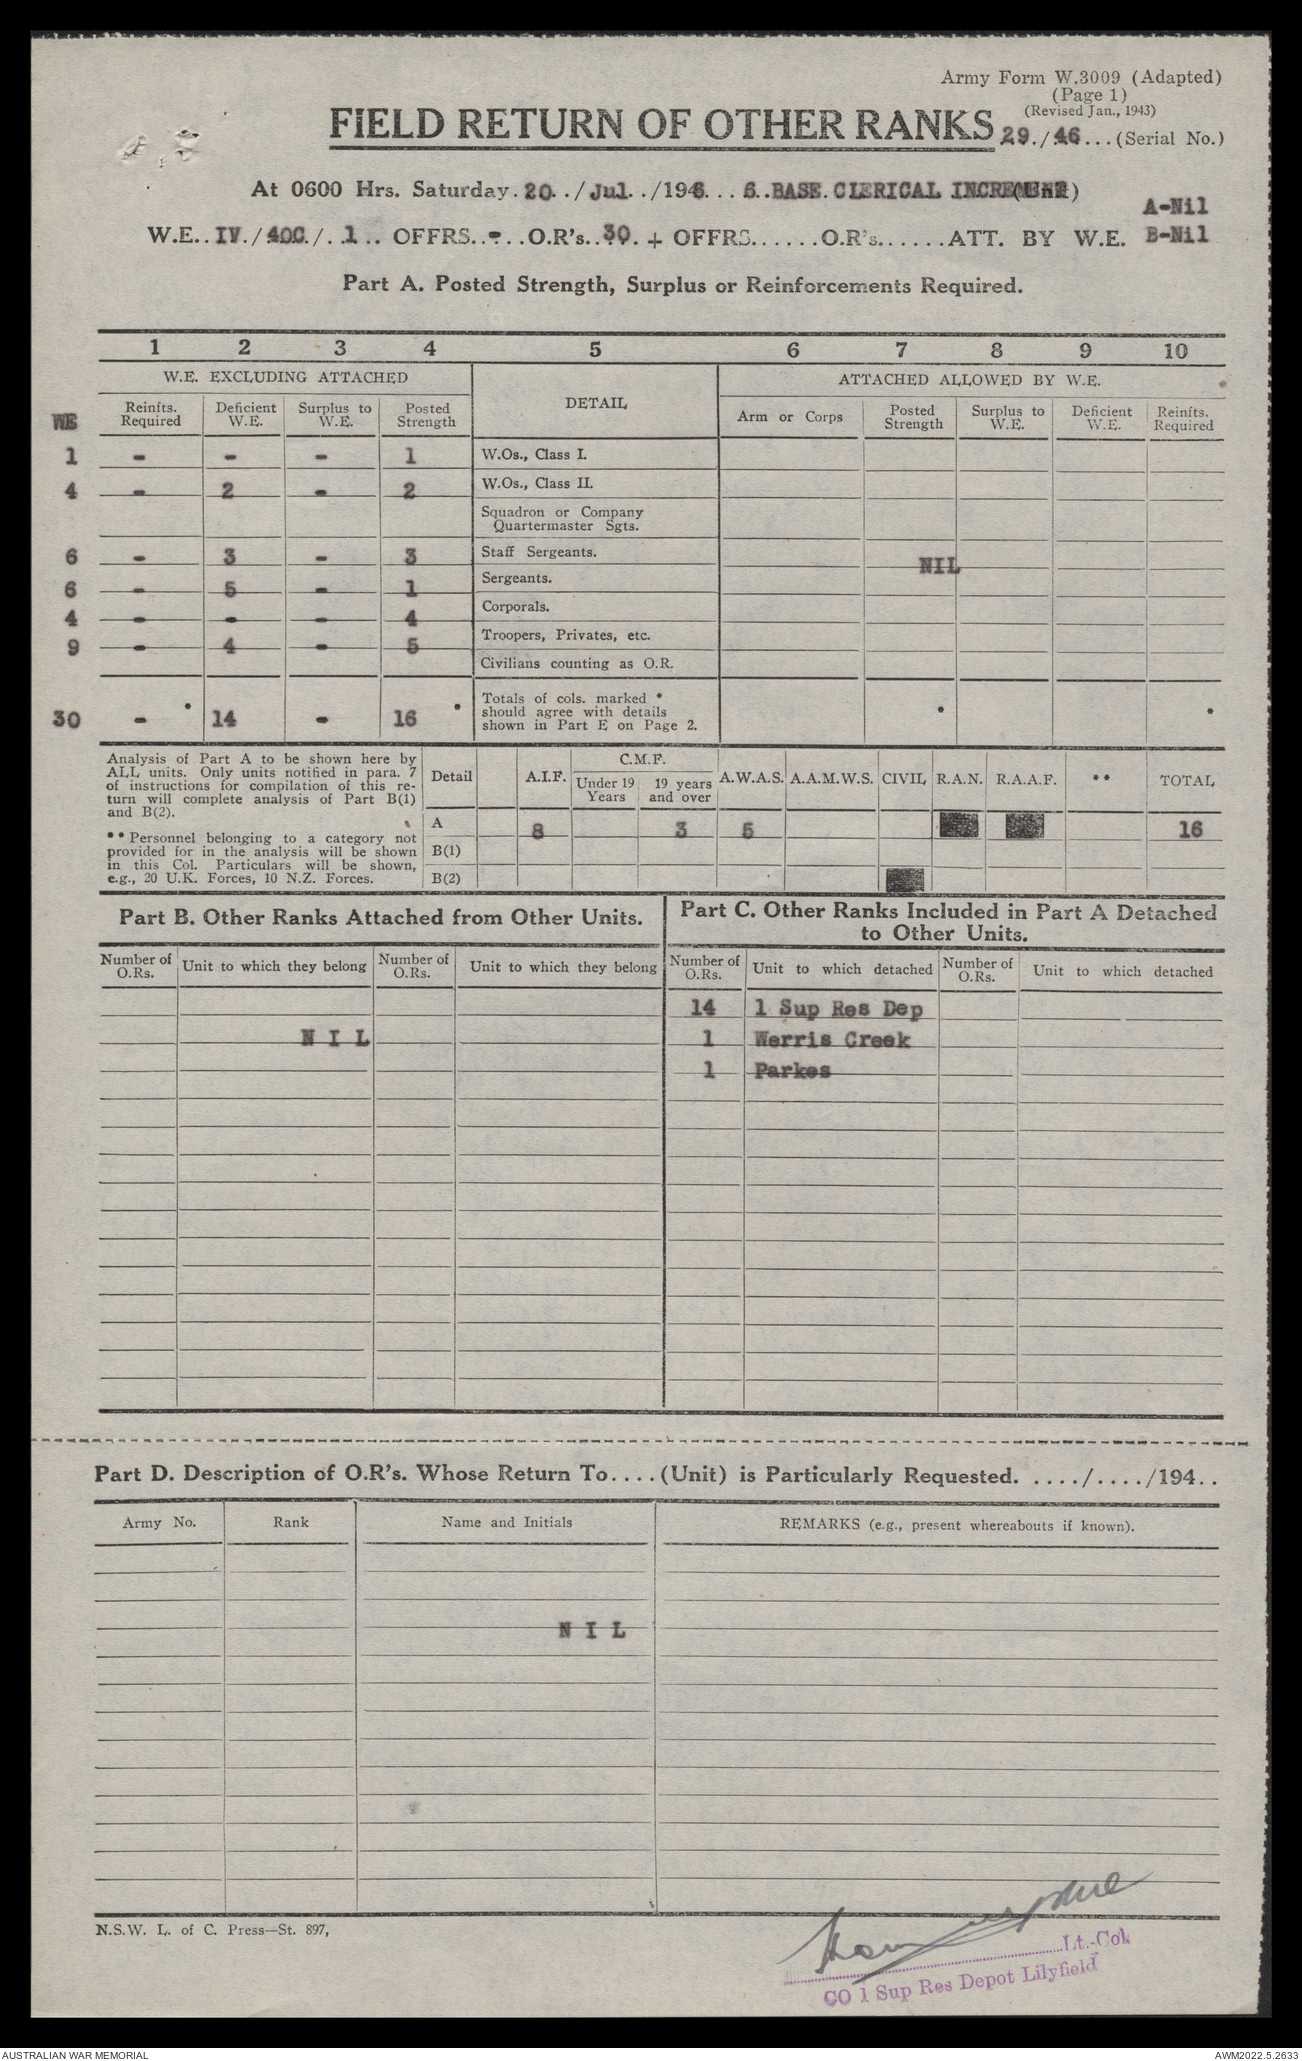 Army Form W.3009 (Adapted)
(Page 1)
(Revised Jan., 1943)
FIELD RETURN OF OTHER RANKS 29./46...(Serial No.)
At 0600 Hrs. Saturday.20../Jul../1946...6..BASE.CLERICAL INCREMENT (Unit)
A-Nil
W.E..IV./40C/..1.. OFFRS..-..O.R's..30.+ OFFRS......O.R's......ATT. BY W.E. B-Nil
Part A. Posted Strength, Surplus or Reinforcements Required.
1 2 3 4 5 6 7 8 9 10
W.E. EXCLUDING ATTACHED DETAIL ATTACHED ALLOWED BY W.E.
WE Reinfts. Required Deficient W.E. Surplus to W.E. Posted Strength Arm or Corps Posted Strength Surplus to W.E. Deficient W.E. Reinfts. Required
1 - - - 1 W.Os., Class I.
4 - 2 - 2 W.Os., Class II.
Squadron or Company
Quartermaster Sgts.
6 - 3 - 3 Staff Sergeants. NIL
6 - 5 - 1 Sergeants.
4 - - - 4 Corporals.
9 - 4 - 5 Troopers, Privates, etc.
Civilians counting as O.R.
30 - * 14 - 16 * Totals of cols. marked *
should agree with details
shown in Part E on Page 2.
Analysis of Part A to be shown here by
ALL units. Only units notified in para. 7
of instructions for compilation of this re-
turn will complete analysis of Part B(1)
and B(2).
** Personnel belonging to a category not
provided for in the analysis will be shown
in this Col. Particulars will be shown,
e.g., 20 U.K. Forces, 10 N.Z. Forces.
C.M.F.
Detail A.I.F. Under 19 Years 19 years and over A.W.A.S. A.A.M.W.S. CIVIL R.A.N. R.A.A.F. ** TOTAL
A 8 3 5 16
B(1)
B(2)
Part B. Other Ranks Attached from Other Units.
Part C. Other Ranks Included in Part A Detached
to Other Units.
Number of O.Rs. Unit to which they belong Number of O.Rs. Unit to which they belong Number of O.Rs. Unit to which detached Number of O.Rs. Unit to which detached
14 1 Sup Res Dep
N I L 1 Werris Creek
1 Parkes
Part D. Description of O.R's. Whose Return To....(Unit) is Particularly Requested. ..../..../194..
Army No. Rank Name and Initials REMARKS (e.g., present whereabouts if known).
N I L
N.S.W. L. of C. Press—St. 897,
Lt.-Col.
CO 1 Sup Res Depot Lilyfield
AUSTRALIAN WAR MEMORIAL AWM2022.5.2633